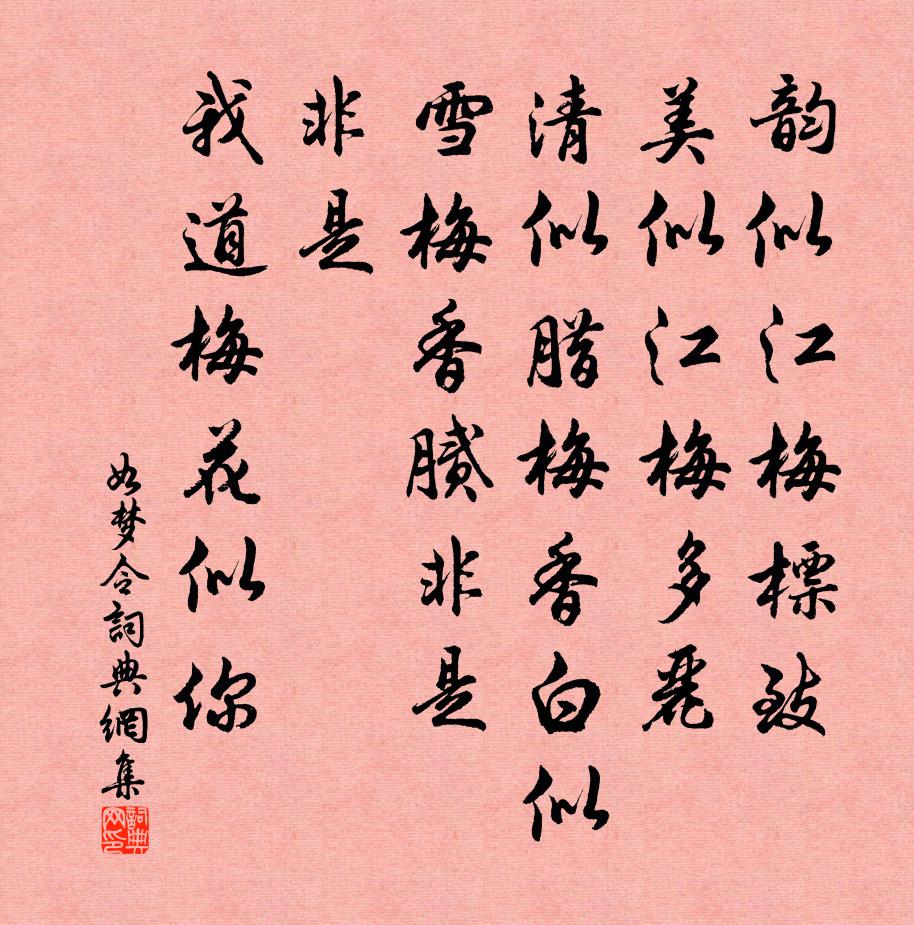 韵似江梅標致
美似江梅多麗
清似腊梅香白似
雪梅香膩非是
非是
我道梅花似你
如梦令詞典網集
詞典网印